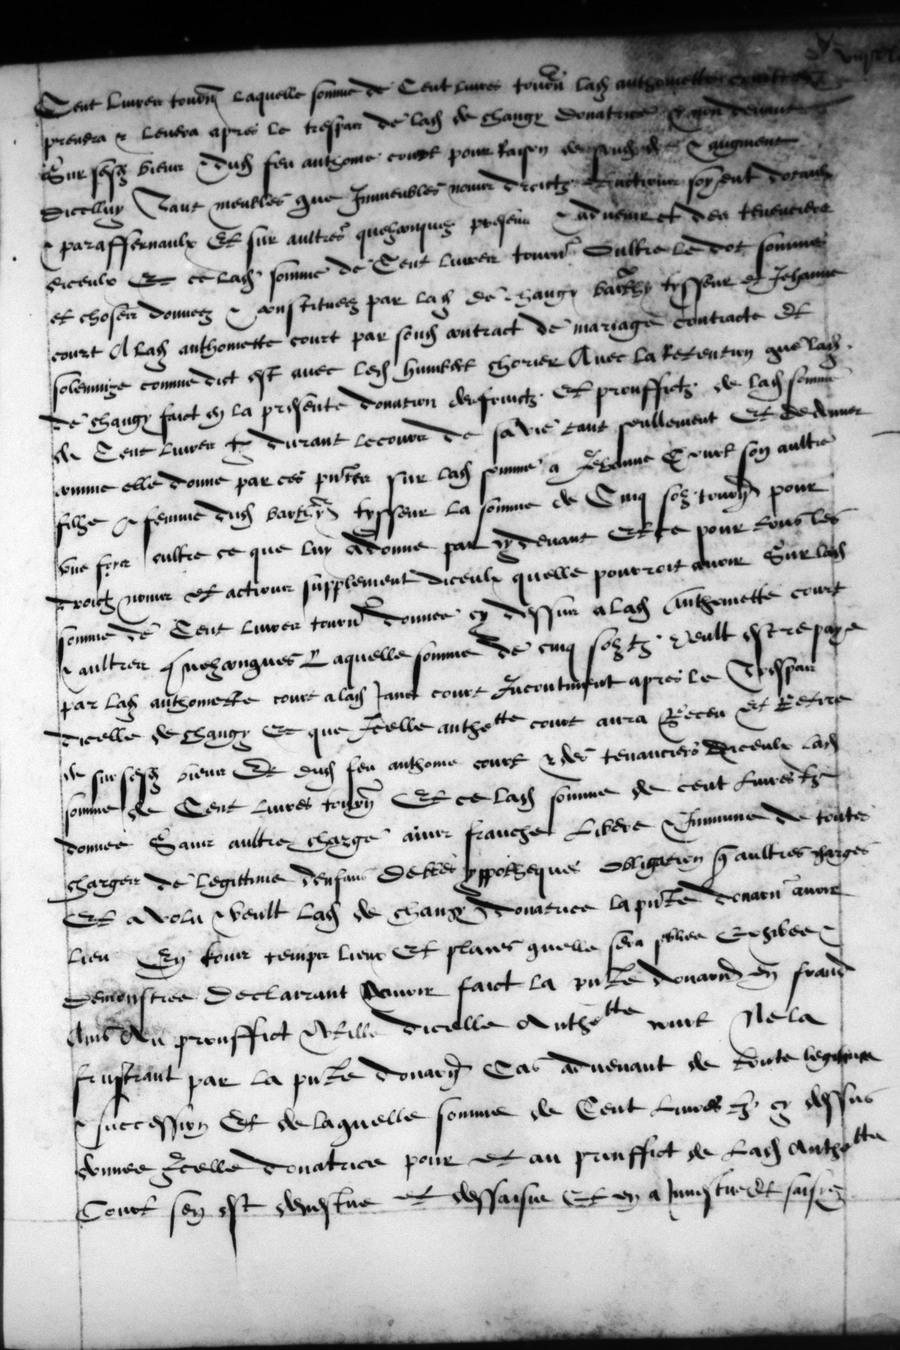 Cent livres tourn laquelle somme de Cent livres tourn lad anthoinette court
prendra & levera apres le trespas de lad de changy donatrice
Sur sesd biens & dud feu anthoine court pour Raison & augment
dicelluy Tant meubles que Immeubles noms droictz & actions soyent dotaulx
& paraffernaulx Et sur aultres quelzonques presens & advenir et des tenenciers
diceulx Et ce lad somme de Cent livres tourn Oultre le dot somme
et choses donnees & constituees par lad de changy barthy tysseur et Jehanne
court A lad anthoinette court par sond contract de mariage contracte Et
solempnize comme dit est avec led humbert chorier Avec la Retention que lad
de changy faict en la presente donation des fruictz Et prouffictz de lad somme
de Cent livres tz durant le cours de sa vie tant seullement Et de donner
comme elle donne par ces pntes sur lad somme a Jehanne Court son aultre
filhe & femme dud barthy tysseur la somme de Cinq solz tourn pour
une foys oultre ce que luy a donne par cy devant Et ce pour tous les
droictz noms et actions supplement diceulx quelle pourroit avoir Sur lad
somme de Cent livres tourn donnee cy dessus a lad Anthoinette court
& aultres quelzonques Laquelle somme de cinq solz tz veult estre payee
par lad anthoinette court a lad Jane court Incontinent apres le Trespas
dicelle de changy Et que Icelle anthotte court aura Receu Et Retire
de sur sesd biens Et dud feu anthoine court & des tenanciers Diceulx lad
somme de Cent livres tourn Et ce lad somme de cent livres tz
donnee Sans aultre charge ains franche Libere & Immune de toutes
charges de legittime denfans Debtes yppotheques obligation & aultres charges
Et a volu & veult lad de changy donatrice la pnte donaon avoir
lieu En tous temps lieux Et places quelle sera Exhibee &
demonstree Declairant Avoir faict la pnte donaon En
Ains Au prouffict & Utille dicelle Anthotte court Ne la
frustrant par la pnte donaon Cas advenant de toute legitime
& succession Et de laquelle somme de Cent livres tz cy dessus
donnee Icelle donatrice pour et au prouffict de Lad Anthotte
Court sen est devestue et dessaisie Et en a Investue Et saisye